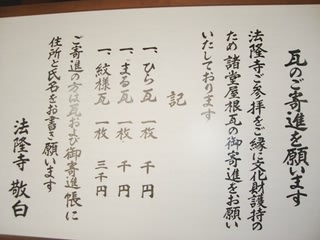 瓦のご寄進を願います
法隆寺ご参拝をご縁に文化財護持の
ため諸堂屋根瓦の御寄進をお願い
いたしております
記
一、ひら瓦 一枚 千円
一、まる瓦 一枚 千円
一、紋様瓦 一枚 三千円
ご寄進の方は瓦および御寄進帳に
住所と氏名をお書き願います
法隆寺 敬白